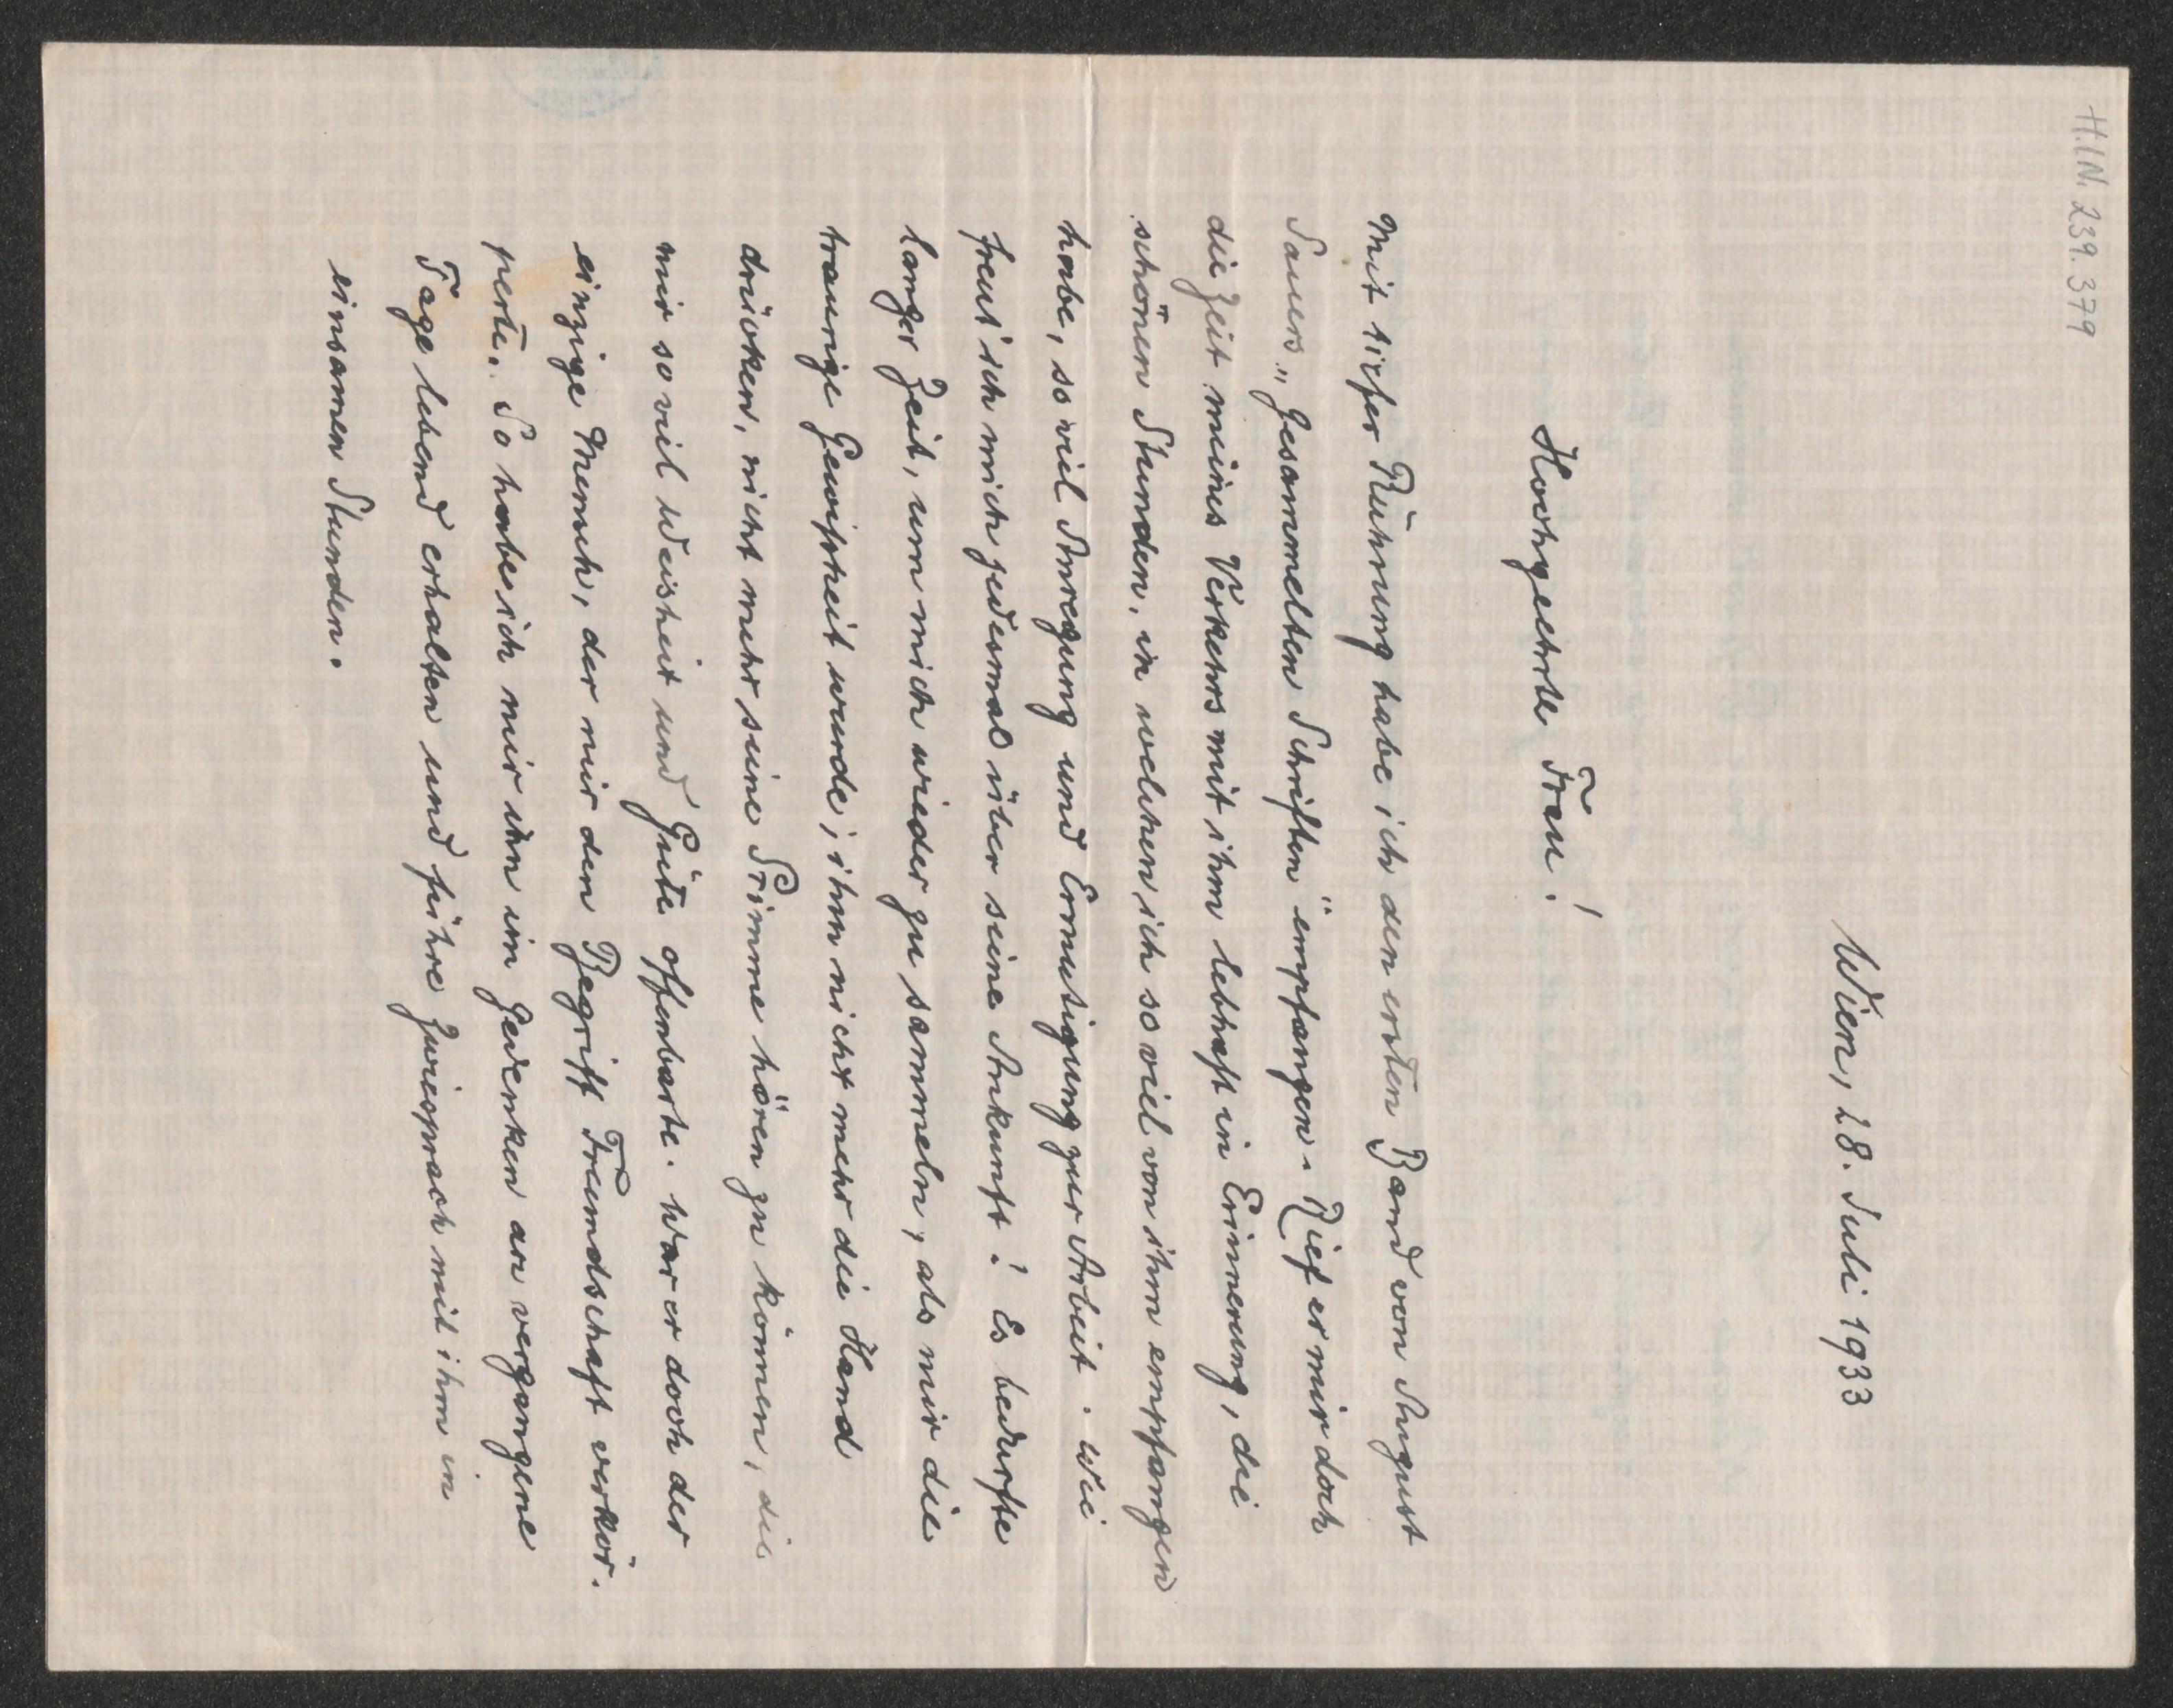 H.I.N. 239.379
Wien, 28. Juli 1933
Hochgeehrte Frau!
Mit tiefer Rührung habe ich den ersten Band von August
Sauers „Gesammelten Schriften" empfangen. Rief er mir doch
die Zeit meines Verkehrs mit ihm lebhaft in Erinnerung, die
schönen Stunden, in welchen ich so viel von ihm empfangen
habe, so viel Anregung und Ermutigung zur Arbeit. Wie
freut' ich mich jedesmal über seine Ankunft! Es bedurfte
langer Zeit, um mich wieder zu sammeln, als mir die
traurige Gewißheit wurde, ihm nicht mehr die Hand
drücken, nicht mehr seine Stimme hören zu können, die
mir so viel Weisheit und Güte offenbarte. War er doch der
einzige Mensch, der mir den Begriff Freundschaft verkör-
perte. So habe ich mir ihn im Gedenken an vergangene
Tage lebend erhalten und führe Zwiesprach mit ihm in
einsamen Stunden.